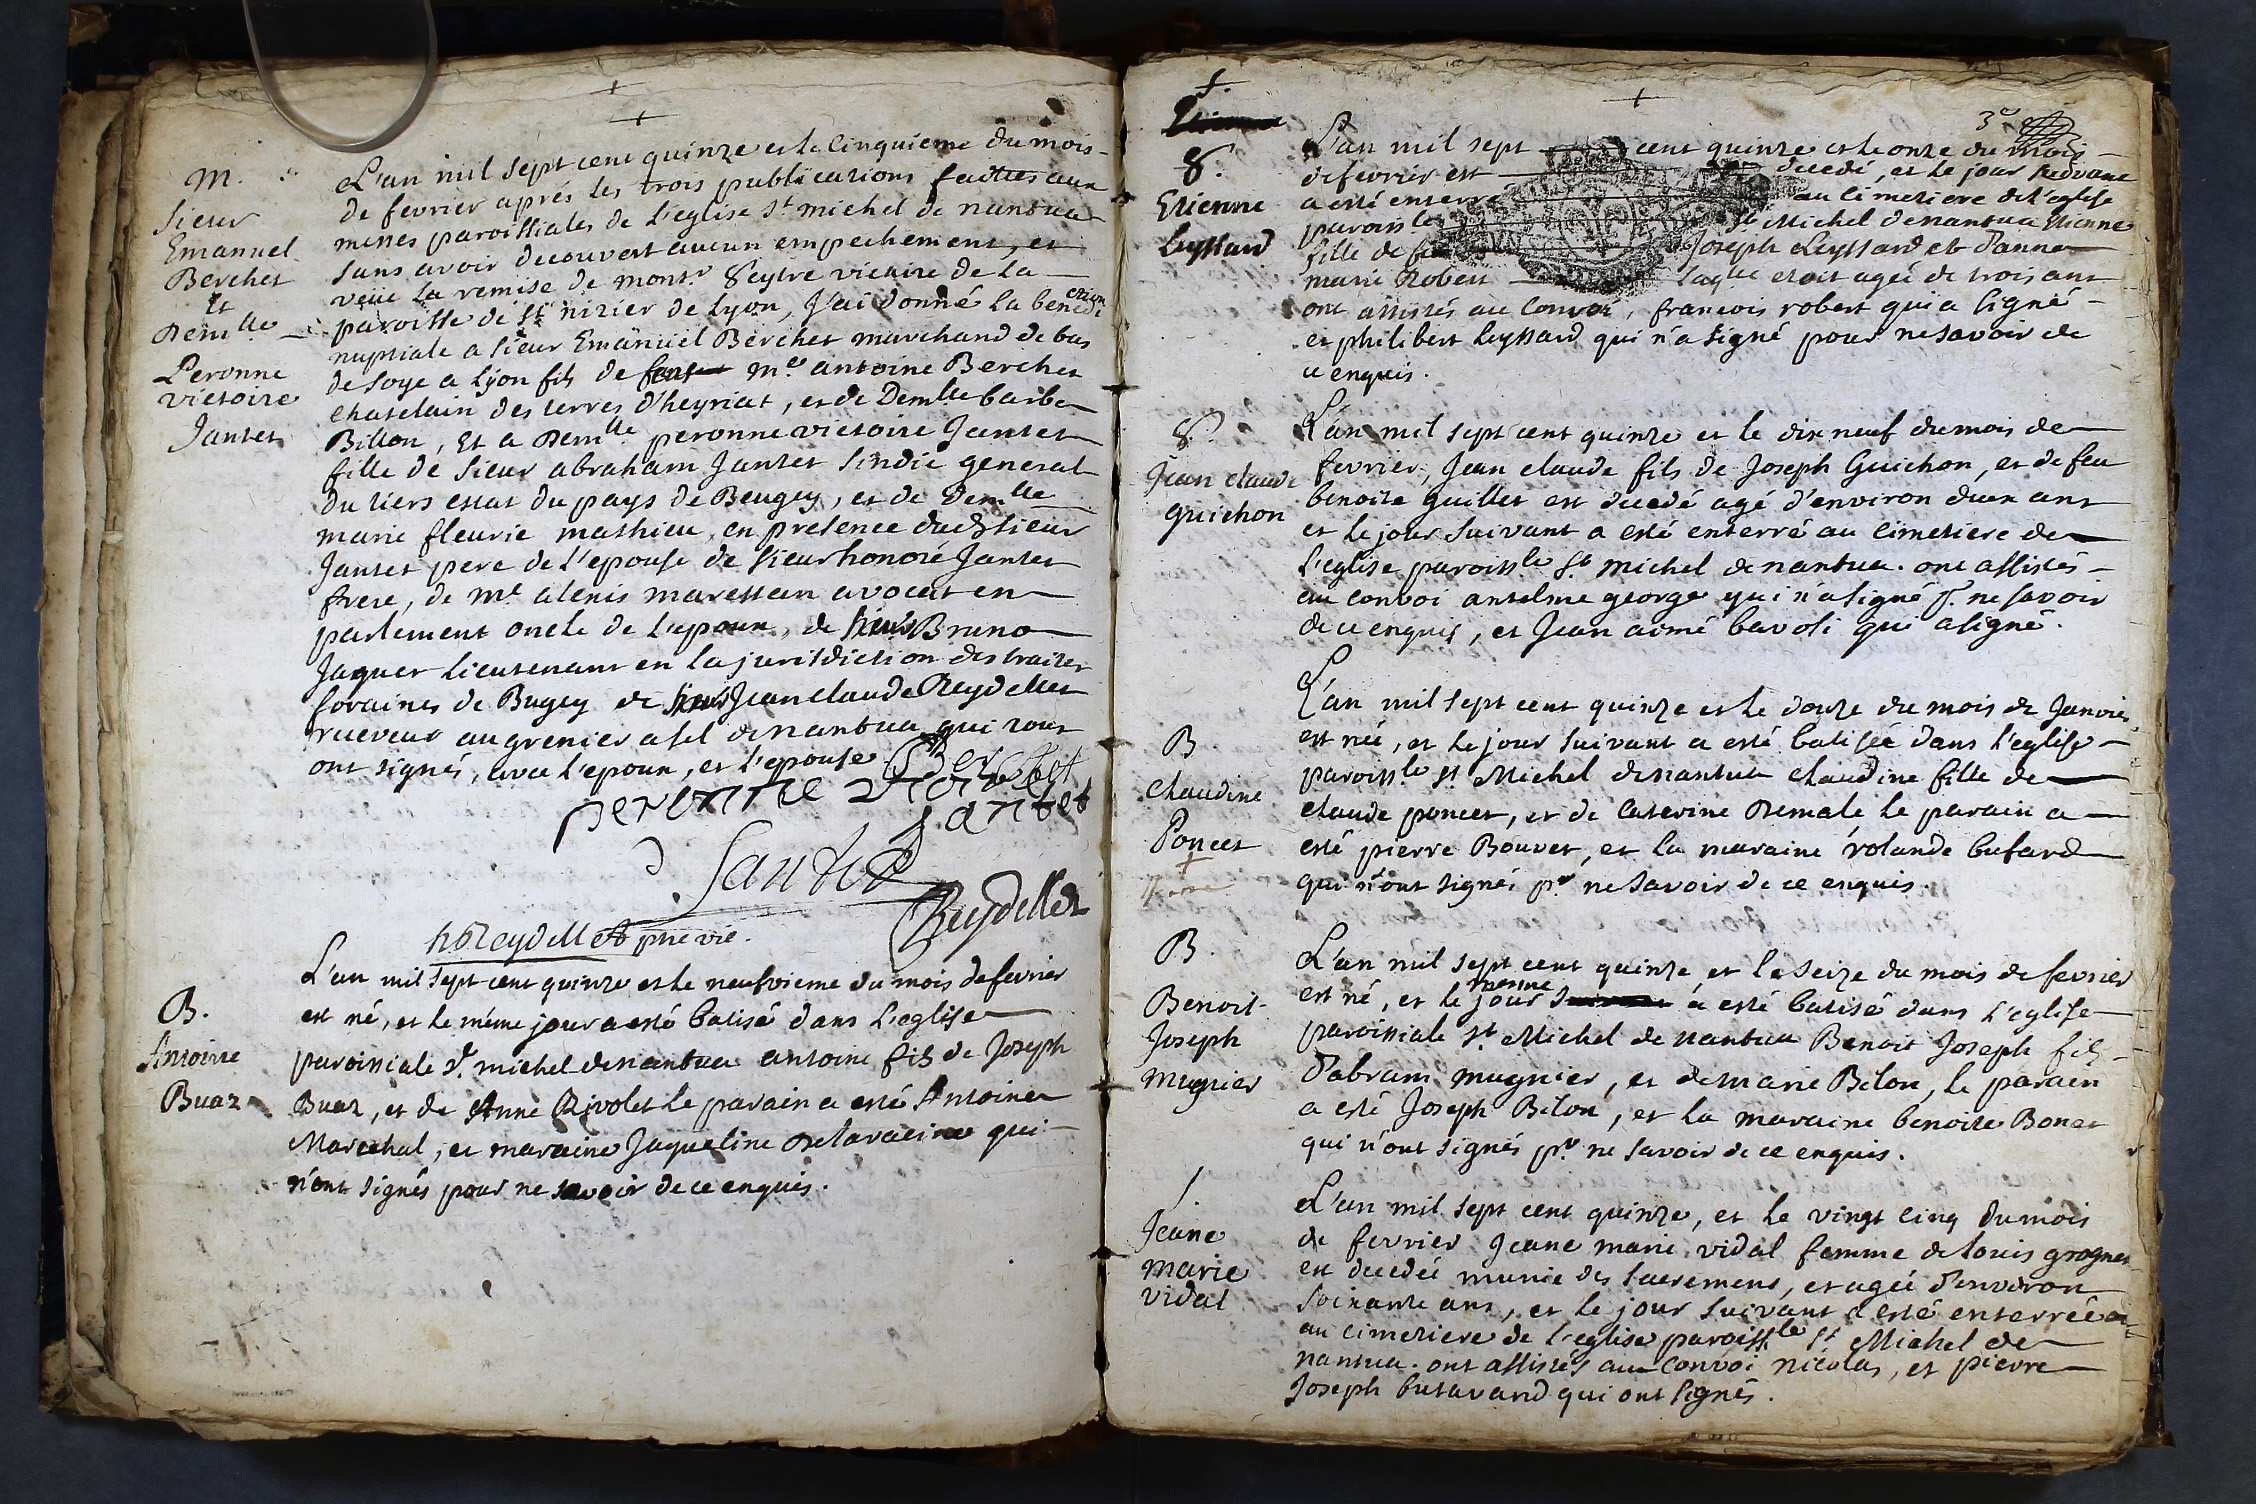 M.
Sieur
Emanuel
Berchet
Et
Dem.lle
Peronne
victoire
Jantet
L'an mil sept cent quinze et le cinquieme du mois
de fevrier aprés les trois publications faittes aux
messes paroissiales de l'eglise st michel de nantua
sans avoir decouvert aucun empechement, et
veüe la remise de mons.r vicaire de la
paroisse de st nizier de Lyon, J'ai donné la benediction
nuptiale a sieur Emanuel Berchet marchand de bas
de soye a Lyon fils de m.e antoine Berchet
chatelain des terres d'heyriat, et de Dem.lle barbe
Billon, Et a Dem.lle peronne victoire Jantet
fille de sieur abraham Jantet sindic general
du tiers estat du pays de Beugey, et de Dem.lle
marie fleurie mathieu, en presence dud sieur
Jantet pere de l'epouse de sieur honoré Jantet
frere, de m.e alexis avocat en
parlement oncle de l'epoux, de sieur Bruno
Jaquet lieutenant en la jurisdiction des traites
foraines de Bugey de sieur Jean claude Reydellet
receveur au grenier a sel de nantua qui tous
ont signés, avec l'epoux, et l'epouse Berchet
peronne victoire
Jantet
Jantet
Reydellet
Reydellet phe vic.
B.
Antoine
Buaz
L'an mil sept cent quinze et le neufvieme du mois de fevrier
est né, et le méme jour a esté batisé dans l'eglise
paroissiale st. michel de nantua antoine fils de Joseph
Buaz, et de Anne Rivolet le parain a esté Antoine
Marechal, et maraine Jaqueline Delavaline qui
n'ont signés pour ne savoir de ce enquis.
3e
S.
Etienne
Leyssard
L'an mil sept cent quinze et le onze du mois
de fevrier est decedé, et le jour suivant
a esté enterré au cimetiere de l'eglise
paroiss.le st Michel de nantua Etienne
fille de Joseph Leyssard et d'anne
marie Robert laq.lle etoit agée de trois ans
ont assistés au convoi, francois robert qui a signé
et philibert leyssard qui n'a signé pour ne savoir de
ce enquis.
S.
Jean claude
guichon
L'an mil sept cent quinze et le dix neuf du mois de
fevrier, Jean claude fils de Joseph Guichon, et de feu
benoite guillet est decedé agé d'environ deux ans
et le jour suivant a esté enterré au cimetiere de
l'eglise paroiss.le st michel de nantua. ont assistés
au convoi anselme george qui n'a signé p.r ne savoir
de ce enquis, et Jean aimé bavosi qui a signé.
B
claudine
Poncet
+
L'an mil sept cent quinze et le douze du mois de Janvier
est née, et le jour suivant a esté batisée dans l'eglise
paroiss.le st Michel de nantua claudine fille de
claude poncet, et de caterine Demale le parain a
esté pierre Bouvet, et la maraine rolande bufard
qui n'ont signés p.r ne savoir de ce enquis.
B.
Benoit
Joseph
mugnier
L'an mil sept cent quinze et le seize du mois de fevrier
est né, et le mesme jour a esté batisé dans l'eglise
paroissiale st. Michel de nantua Benoit Joseph fils
d'abram mugnier, et de marie Bilon, le parain
a esté Joseph Bilon, et la maraine benoite Bonet
qui n'ont signés p.r ne savoir de ce enquis.
Jeane
marie
vidal
L'an mil sept cent quinze, et le vingt cinq du mois
de fevrier Jeane marie vidal femme de louis grognet
est decedée munie des sacremens, et agée d'environ
soixante ans, et le jour suivant a esté enterrée
au cimetiere de l'eglise paroiss.le st Michel de
nantua. ont assistés au convoi nicolas, et pierre
Joseph butavand qui ont signés.